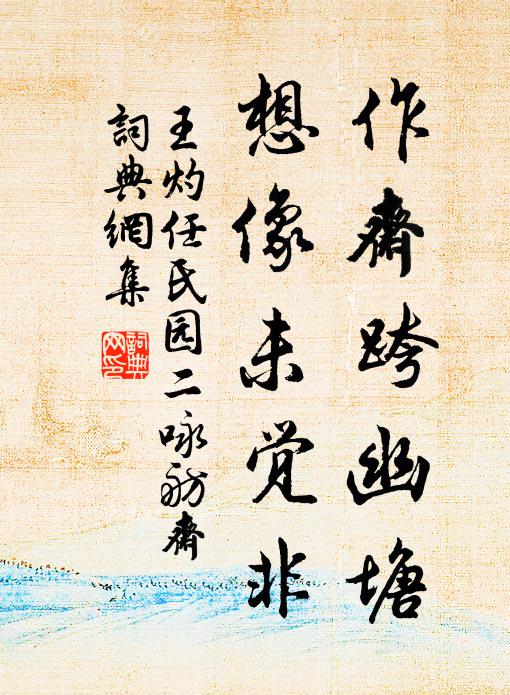 作齋跨幽塘
想像未觉非
王灼任民园二咏舫齋
詞典網集
詞典